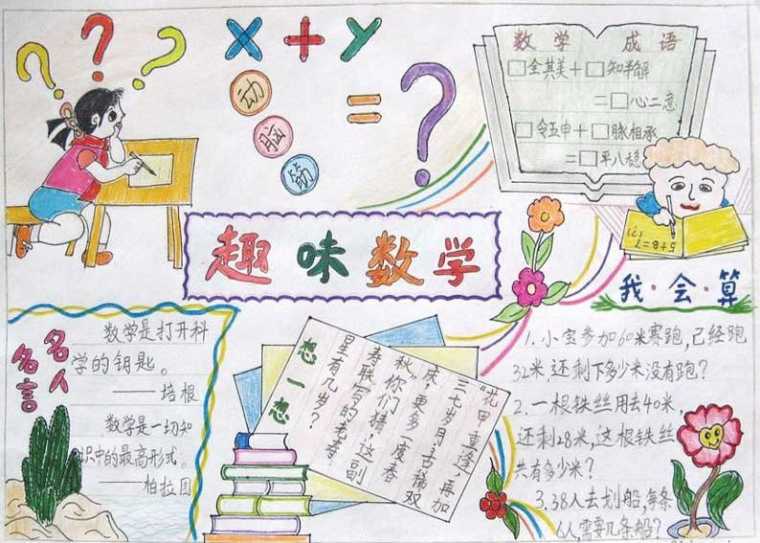 ? ? ?
X + Y
= ?
动
脑
筋
数学 成语
□全其美+□知半解
=□心二意
□令五申+□脉相承
=□平八稳
趣味数学
我·会·算
名人名言
数学是打开科
学的钥匙。
——培根
数学是一切知
识中的最高形式。
——柏拉图
想一想
"花甲重逢,再加
三七岁月;古稀双
庆,更多一度春
秋。"你们猜,这副
寿联写的老寿
星有几岁?
1.小宝参加60米赛跑,已经跑
32米,还剩下多少米没有跑?
2.一根铁丝用去40米,
还剩28米,这根铁丝
共有多少米?
3.38人去划船,每条
6人,需要几条船?